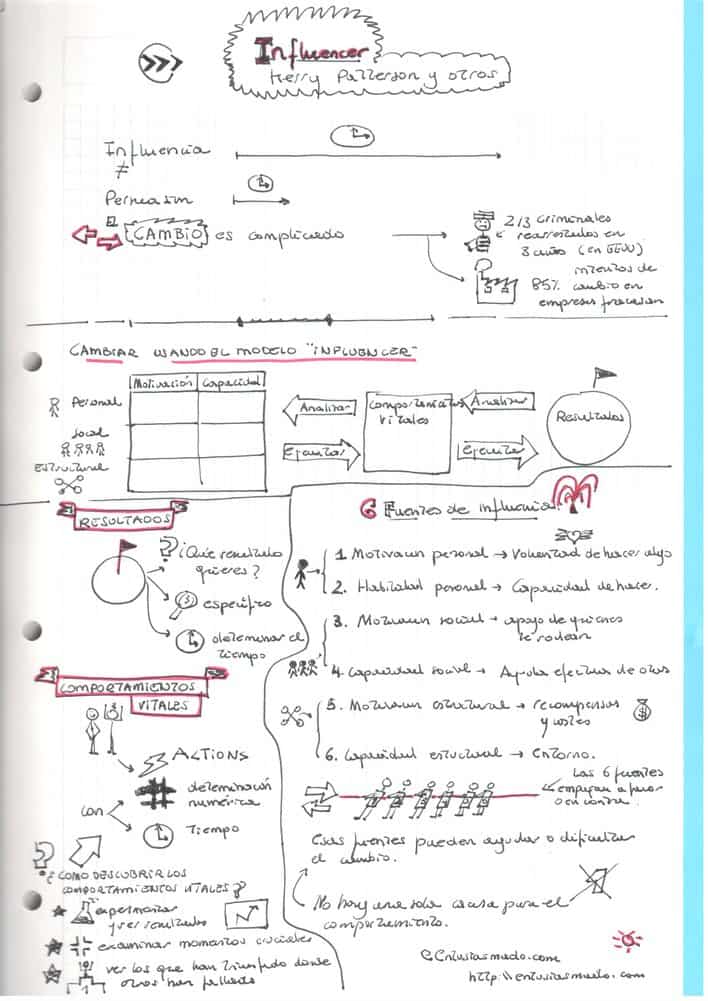 Influencer
Kerry Patterson y otros
Influencia
≠
Persuasión
CAMBIO es complicado
2/3 criminales
rearrestados en
3 años (en EEUU)
intentos de
85% cambio en
empresas fracasan
CAMBIAR USANDO EL MODELO "INFLUENCER"
Motivación Capacidad
Personal
Social
Estructural
Analizar
Ejecutar
Comportamientos
vitales
Analizar
Ejecutar
Resultados
RESULTADOS
? ¿Qué resultado
quieres?
específico
determinar el
tiempo
COMPORTAMIENTOS
VITALES
ACTIONS
con
# determinación
numérica
Tiempo
?
¿COMO DESCUBRIR LOS
COMPORTAMIENTOS VITALES?
experimentar
y ver resultados
examinar momentos cruciales
ver los que han triunfado donde
otros han fallado
6 Fuentes de influencia
1. Motivacion personal → Voluntad de hacer algo
2. Habilidad personal → Capacidad de hacer.
3. Motivacion social → apoyo de quienes
te rodean
4. Capacidad social → Ayuda efectiva de otros
5. Motivacion estructural → recompensas
y costes
$
6. Capacidad estructural → Entorno.
Las 6 fuentes
empujan a favor
o en contra
Esas fuentes pueden ayudar o dificultar
el cambio.
No hay una sola causa para el
comportamiento.
©Entusiasmado.com
http://entusiasmado.com